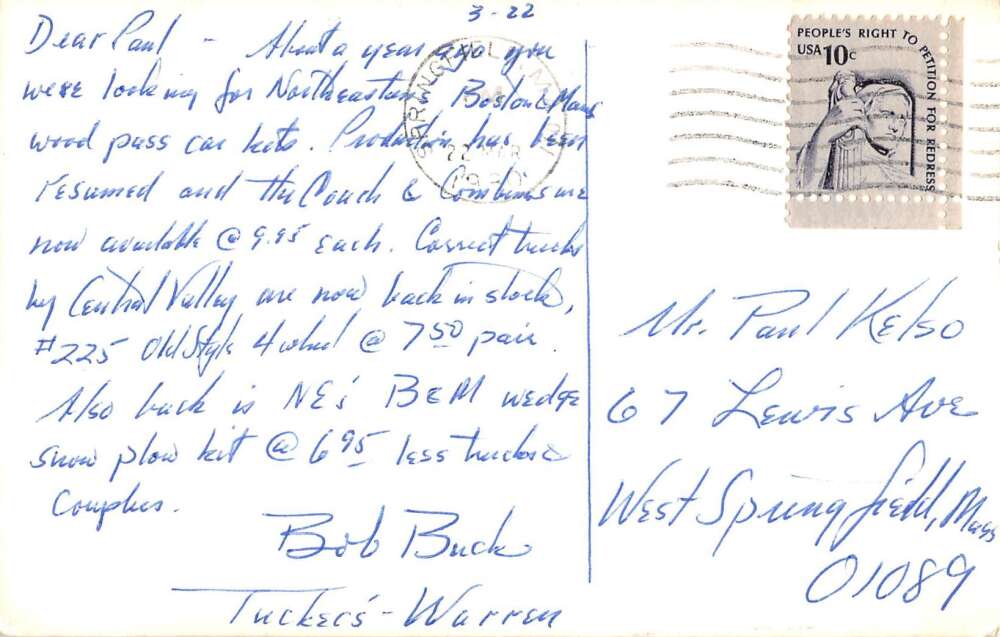 3-22
Dear Paul - About a year ago you
were looking for Northeastern Boston & Maine
wood pass car kits. Production has been
resumed and the Coach & Combines are
now available @ 9.95 each. Correct trucks
by Central Valley are now back in stock,
#225 Old Style 4 wheel @ 7 50 pair.
Also back is NE's B&M wedge
snow plow kit @ 6 95 less trucks &
Couplers.
Bob Buck
Tucker's - Warren
SPRINGFIELD, MA
22 MAR
PEOPLE'S RIGHT TO PETITION FOR REDRESS
USA 10c
Mr. Paul Kelso
67 Lewis Ave
West Springfield, Mass
01089